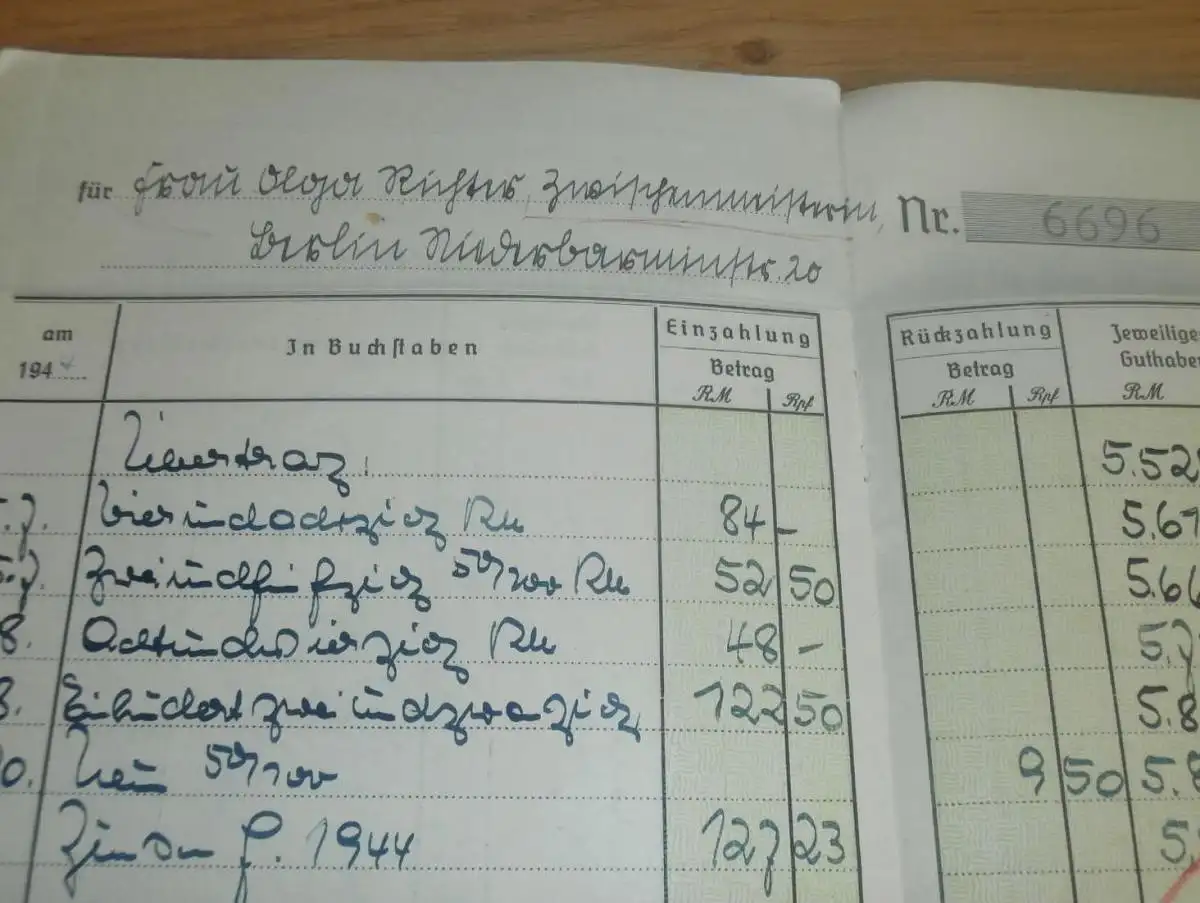 für Frau Olga Richter, Zwischenmeisterin, Nr. 6696
Berlin Niederbarnimstr. 20
am 194 4 In Buchstaben Einzahlung Betrag RM Rpf Rückzahlung Betrag RM Rpf Jeweilige Guthabe RM
Übertrag 5.52
.7. Vierundachtzig RM 84 – 5.61
.7. Zweiundfünfzig 50/100 RM 52 50 5.66
8. Achtundvierzig RM 48 – 5.7
8. Einhundertzweiundzwanzig 122 50 5.8
0. Neun 50/100 9 50 5.8
Zinsen f. 1944 127 23 5.